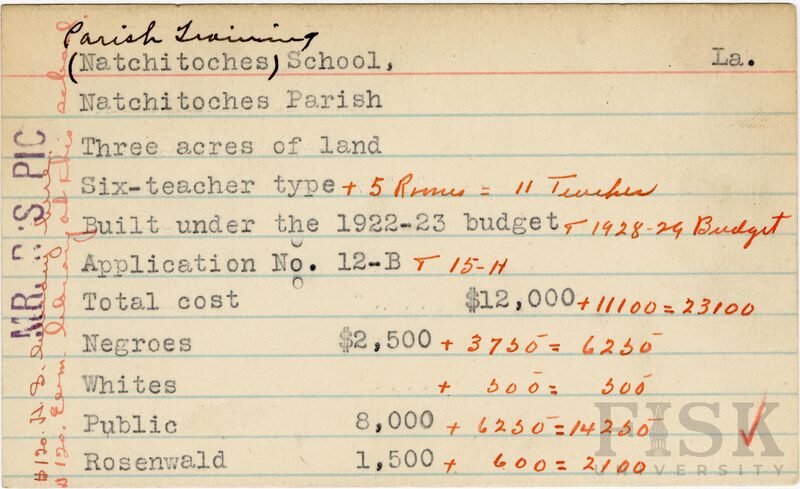 Parish Training
(Natchitoches) School, La.
Natchitoches Parish
Three acres of land
Six-teacher type + 5 Rooms = 11 Teacher
Built under the 1922-23 budget + 1928-29 Budget
Application No. 12-B + 15-H
Total cost $12,000 + 11100 = 23100
Negroes $2,500 + 3750 = 6250
Whites + 500 = 500
Public 8,000 + 6250 = 14250
Rosenwald 1,500 + 600 = 2100
MR. 'S PIC
$120. H.S. library
$120. Elem. library at this school
FISK
UNIVERSITY